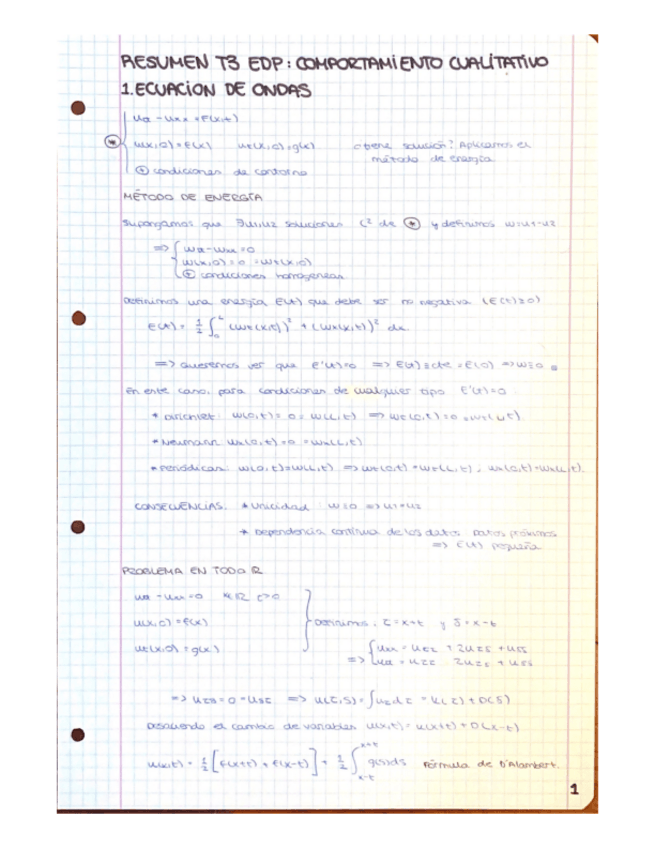 RESUMEN T3 EDP: COMPORTAMIENTO CUALITATIVO
1. ECUACIÓN DE ONDAS
utt - uxx = F(x,t)
* u(x,0) = f(x) ut(x,0) = g(x) ¿tiene solución? Aplicamos el
método de energía
⊕ condiciones de contorno
MÉTODO DE ENERGÍA
Supongamos que ∃ u1, u2 soluciones C² de * y definimos w = u1 - u2
=> { wtt - wxx = 0
w(x,0) = 0 = wt(x,0)
⊕ condiciones homogéneas
Definimos una energía E(t) que debe ser no negativa (E(t) ≥ 0)
E(t) = 1/2 ∫₀ᴸ (wt(x,t))² + (wx(x,t))² dx
=> Queremos ver que E'(t) = 0 => E(t) ≡ cte = E(0) => w ≡ 0
En este caso, para condiciones de cualquier tipo E'(t) = 0
* Dirichlet: w(0,t) = 0 = w(L,t) => wt(0,t) = 0 = wt(L,t).
* Neumann: wx(0,t) = 0 = wx(L,t)
* Periódicas: w(0,t) = w(L,t) => wt(0,t) = wt(L,t), wx(0,t) = wx(L,t).
CONSECUENCIAS: * Unicidad: w ≡ 0 => u1 = u2
* Dependencia continua de los datos: datos próximos
=> E(t) pequeña
PROBLEMA EN TODO R
utt - uxx = 0 x∈R t>0
u(x,0) = f(x) } Definimos: τ = x+t y δ = x-t
ut(x,0) = g(x) => { uxx = uττ + 2uτδ + uδδ
utt = uττ 2uτδ + uδδ
=> uτδ = 0 = uδτ => u(τ,δ) = ∫ uτ dτ = k(τ) + D(δ)
Deshaciendo el cambio de variables u(x,t) = k(x+t) + D(x-t)
u(x,t) = 1/2 [f(x+t) + f(x-t)] + 1/2 ∫ₓ₋ₜˣ⁺ᵗ g(s)ds Fórmula de D'Alambert.
1